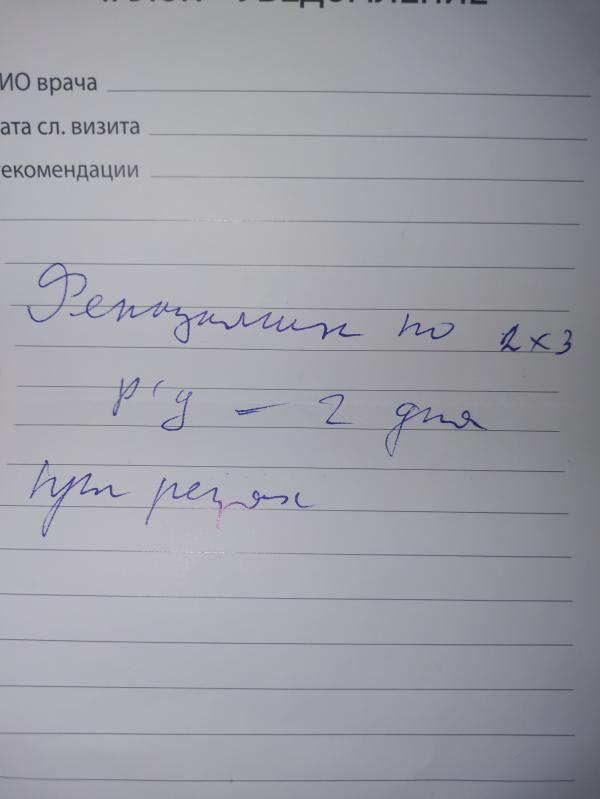 ТАЛОН - УВЕДОМЛЕНИЕ
ИО врача
ата сл. визита
екомендации
Феназалгин по 2 х 3
р/д — 2 дня
при резях